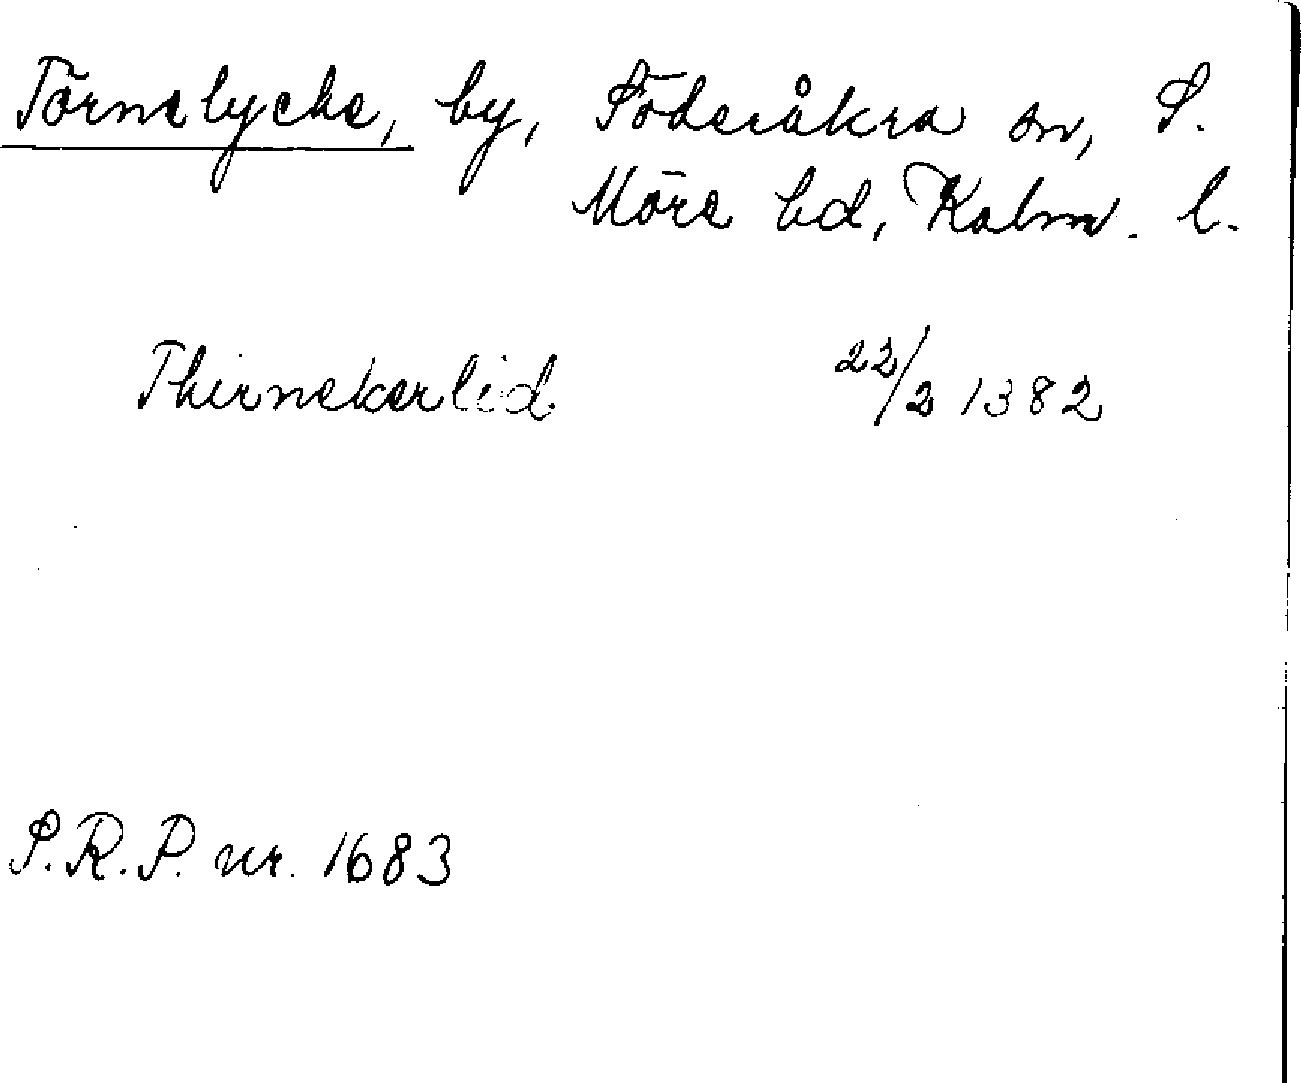 Törnelycke, by, Söderåkra sn, S.
Möre hd, Kalm. l.
Thirnekærlid 22/2 1382
S.R.P. nr. 1683